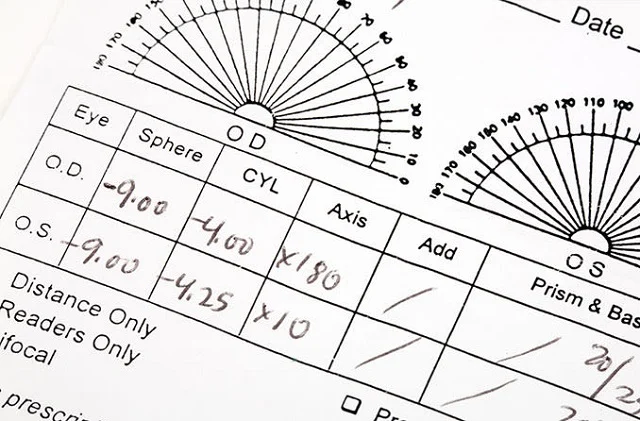 Date
180 170 160 150 70 60 50 40 30 20 10 0
180 170 160 150 140 130 120 110 100
O D
O S
Eye Sphere CYL Axis Add Prism & Bas
O.D. -9.00 -4.00 x180 / / 20/2
O.S. -9.00 -4.25 x10 / / 20
Distance Only
Readers Only
ifocal
prescri
Pr